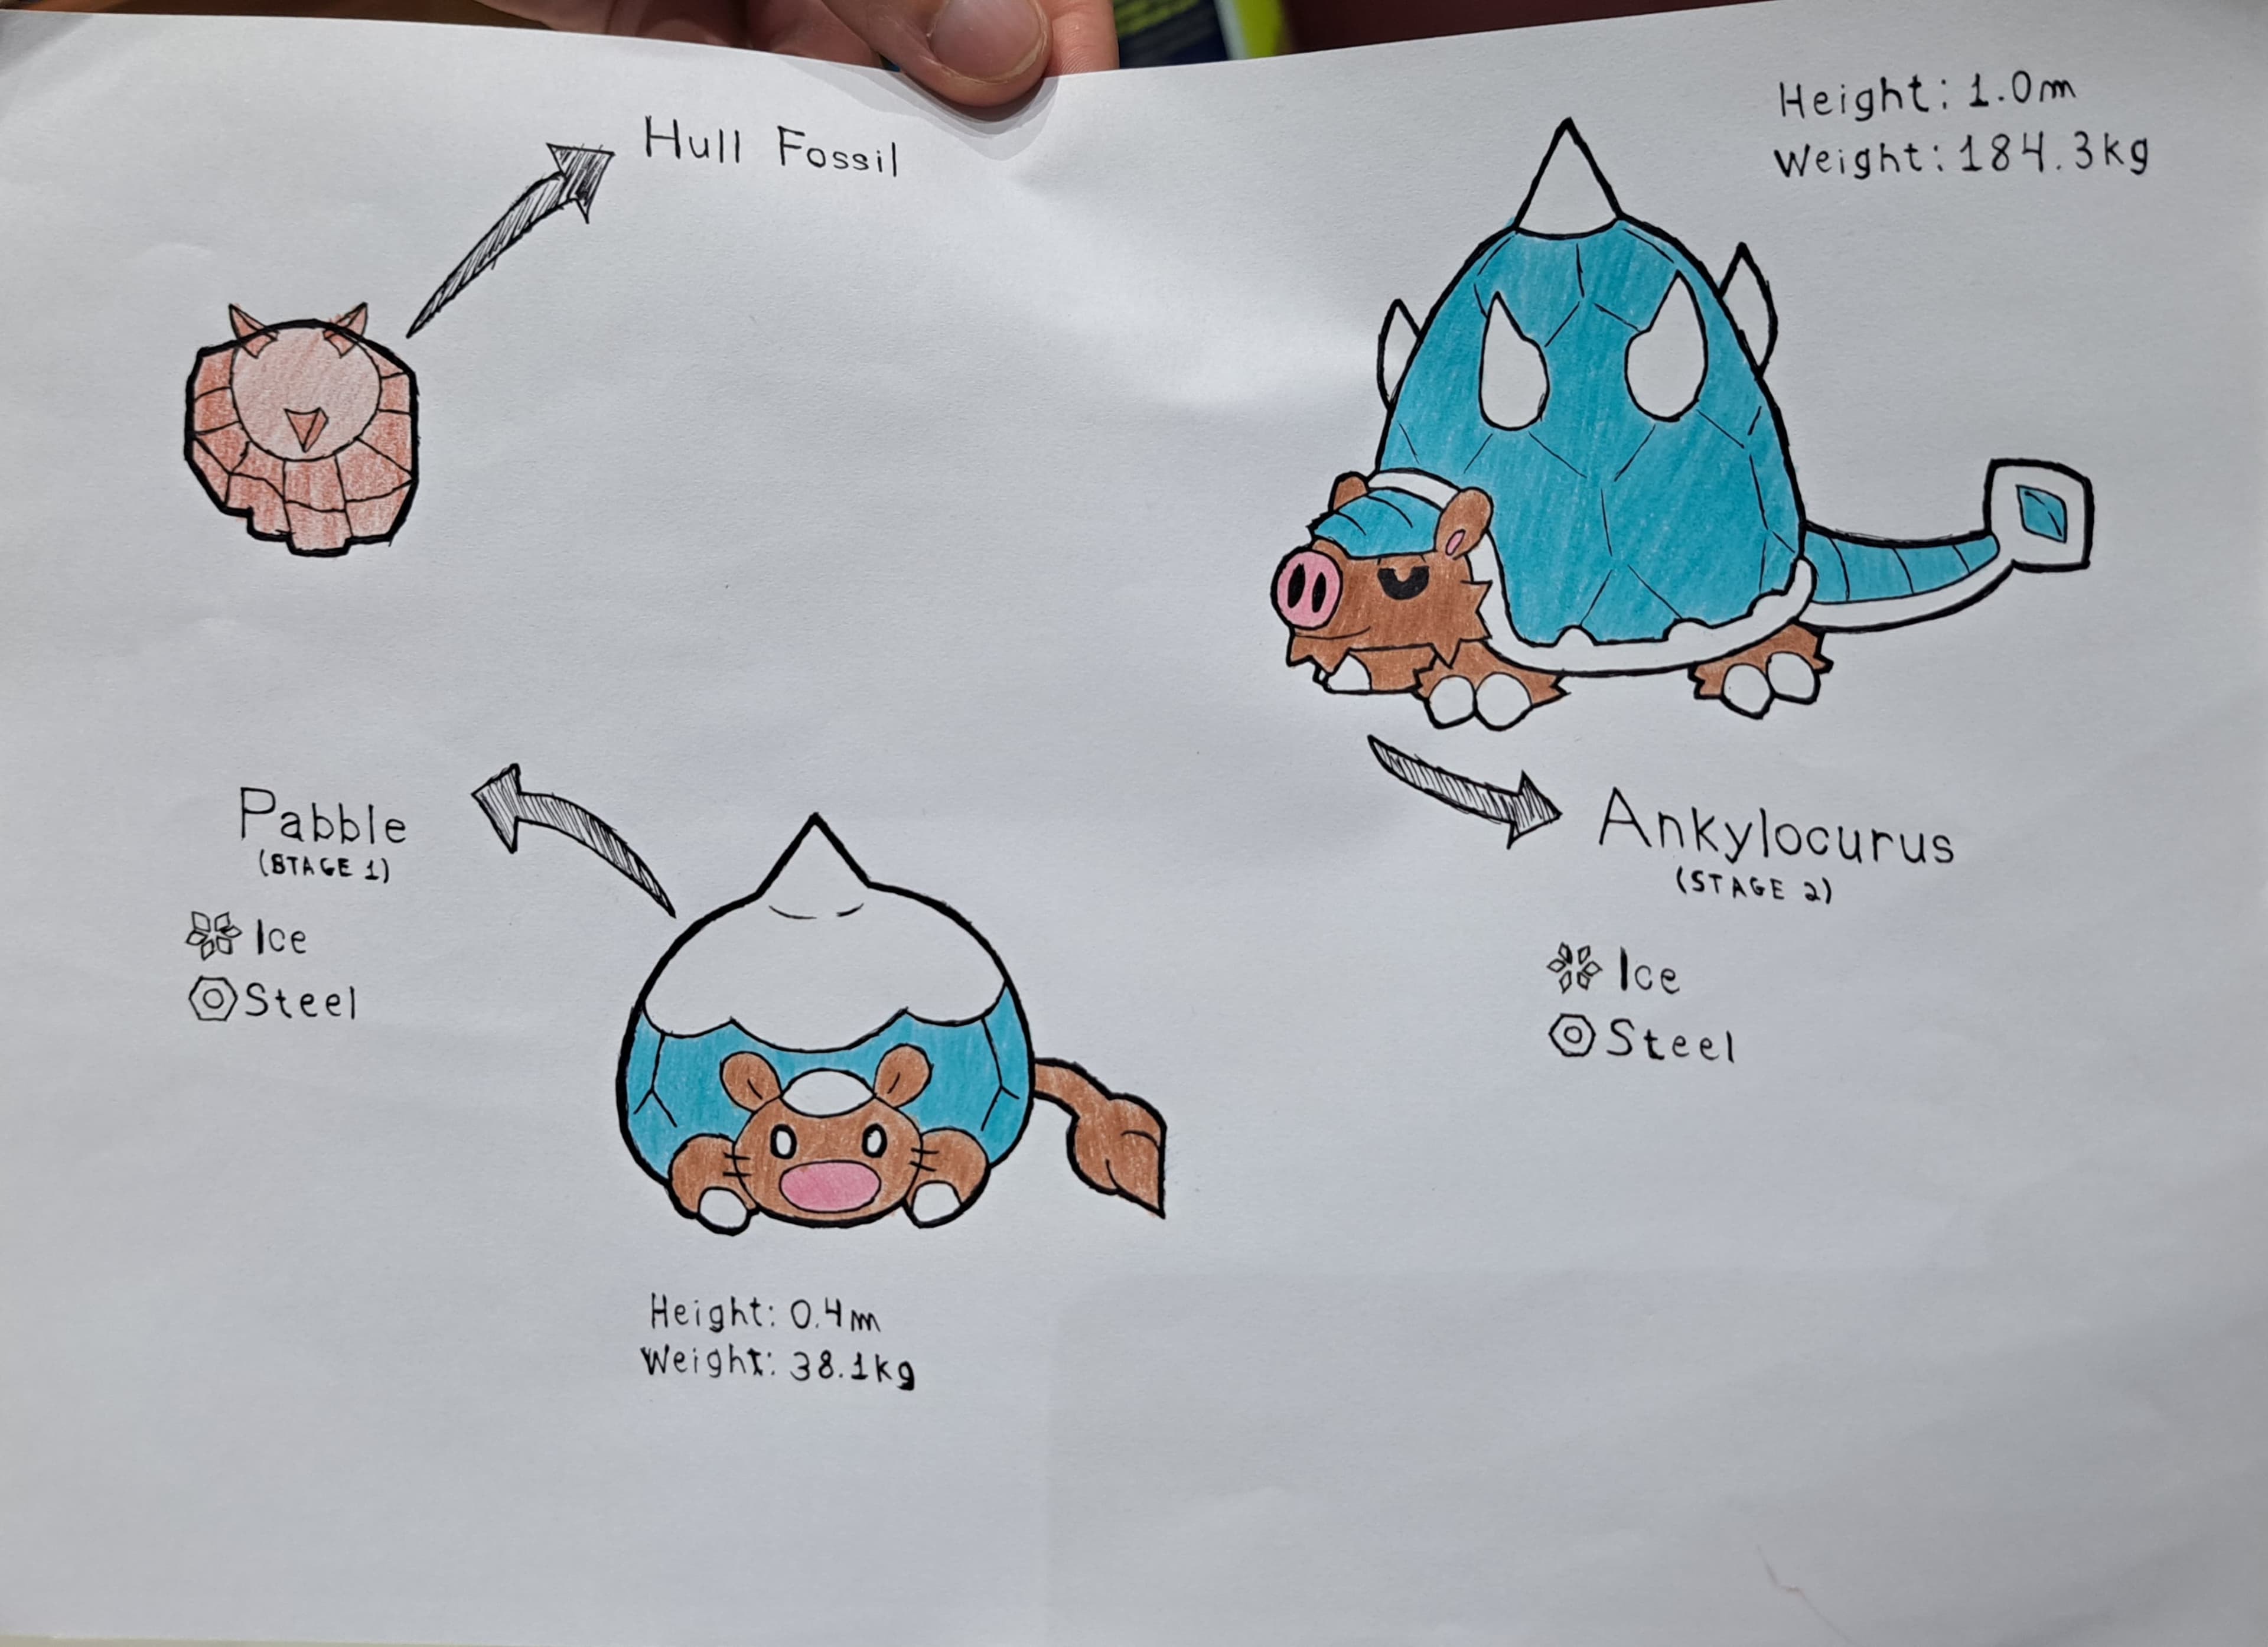 Hull Fossil
Height: 1.0m
Weight: 184.3kg
Pabble
(STAGE 1)
Ice
Steel
Height: 0.4m
Weight: 38.1kg
Ankylocurus
(STAGE 2)
Ice
Steel